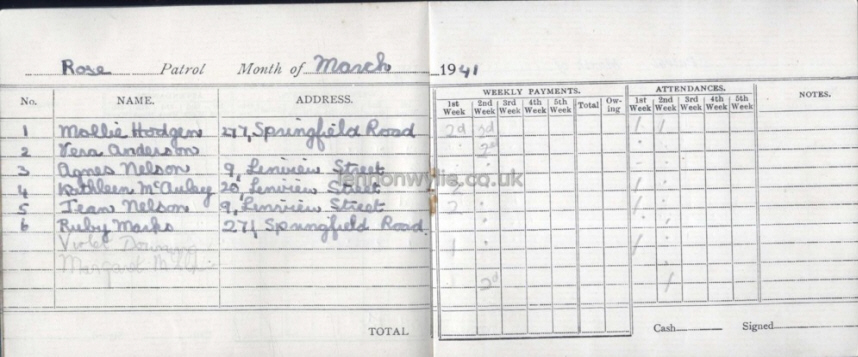 Rose Patrol Month of March 1941
WEEKLY PAYMENTS. ATTENDANCES.
No. NAME. ADDRESS. 1st Week 2nd Week 3rd Week 4th Week 5th Week Total Ow-ing 1st Week 2nd Week 3rd Week 4th Week 5th Week NOTES.
1 Mollie Hodgen 277, Springfield Road 2d 3d / /
2 Vera Anderson 2d
3 Agnes Nelson 9, Lenview Street
4 Kathleen McAuley 20, Lenview Street
lennonwylie.co.uk
5 Jean Nelson 9, Lenview Street 2 /
6 Ruby Marks 271, Springfield Road.
Violet 1 /
Margaret
2d /
TOTAL Cash Signed